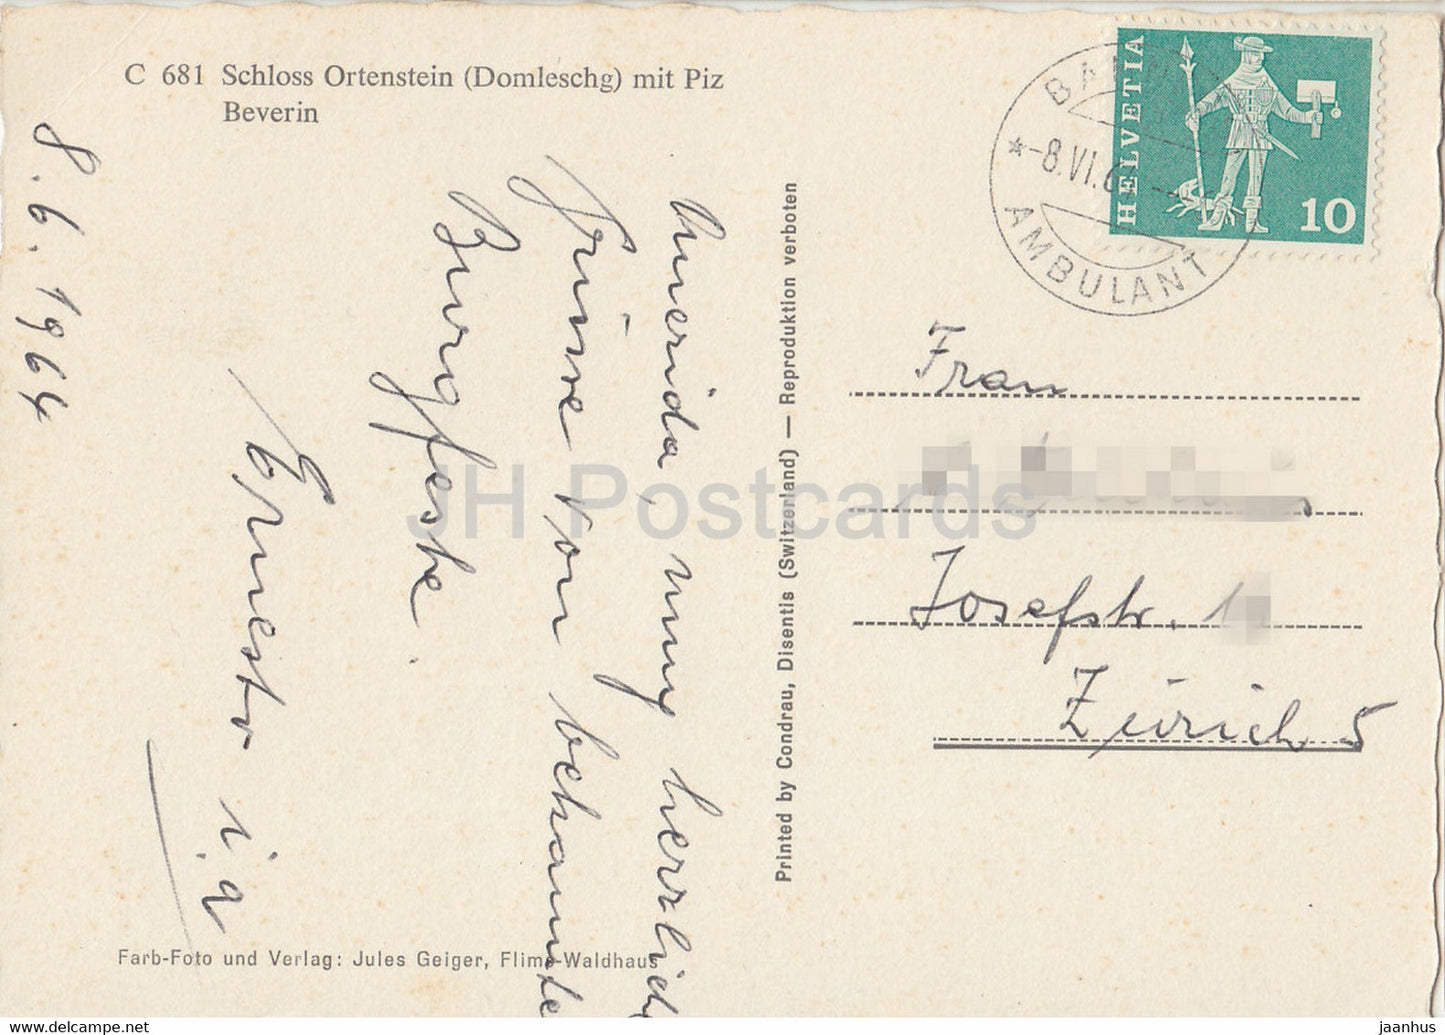 C 681 Schloss Ortenstein (Domleschg) mit Piz
Beverin
8.6.1964
herzlich
Grüsse von bekannte
Burgfeste
Ernesto i.a
Farb-Foto und Verlag: Jules Geiger, Flims-Waldhaus
Printed by Condrau, Disentis (Switzerland) — Reproduktion verboten
HELVETIA
10
AMBULANT
-8.VI.6
Frau
Josefstr. 1
Zürich 5
JH Postcards
www.delcampe.net
jaanhus